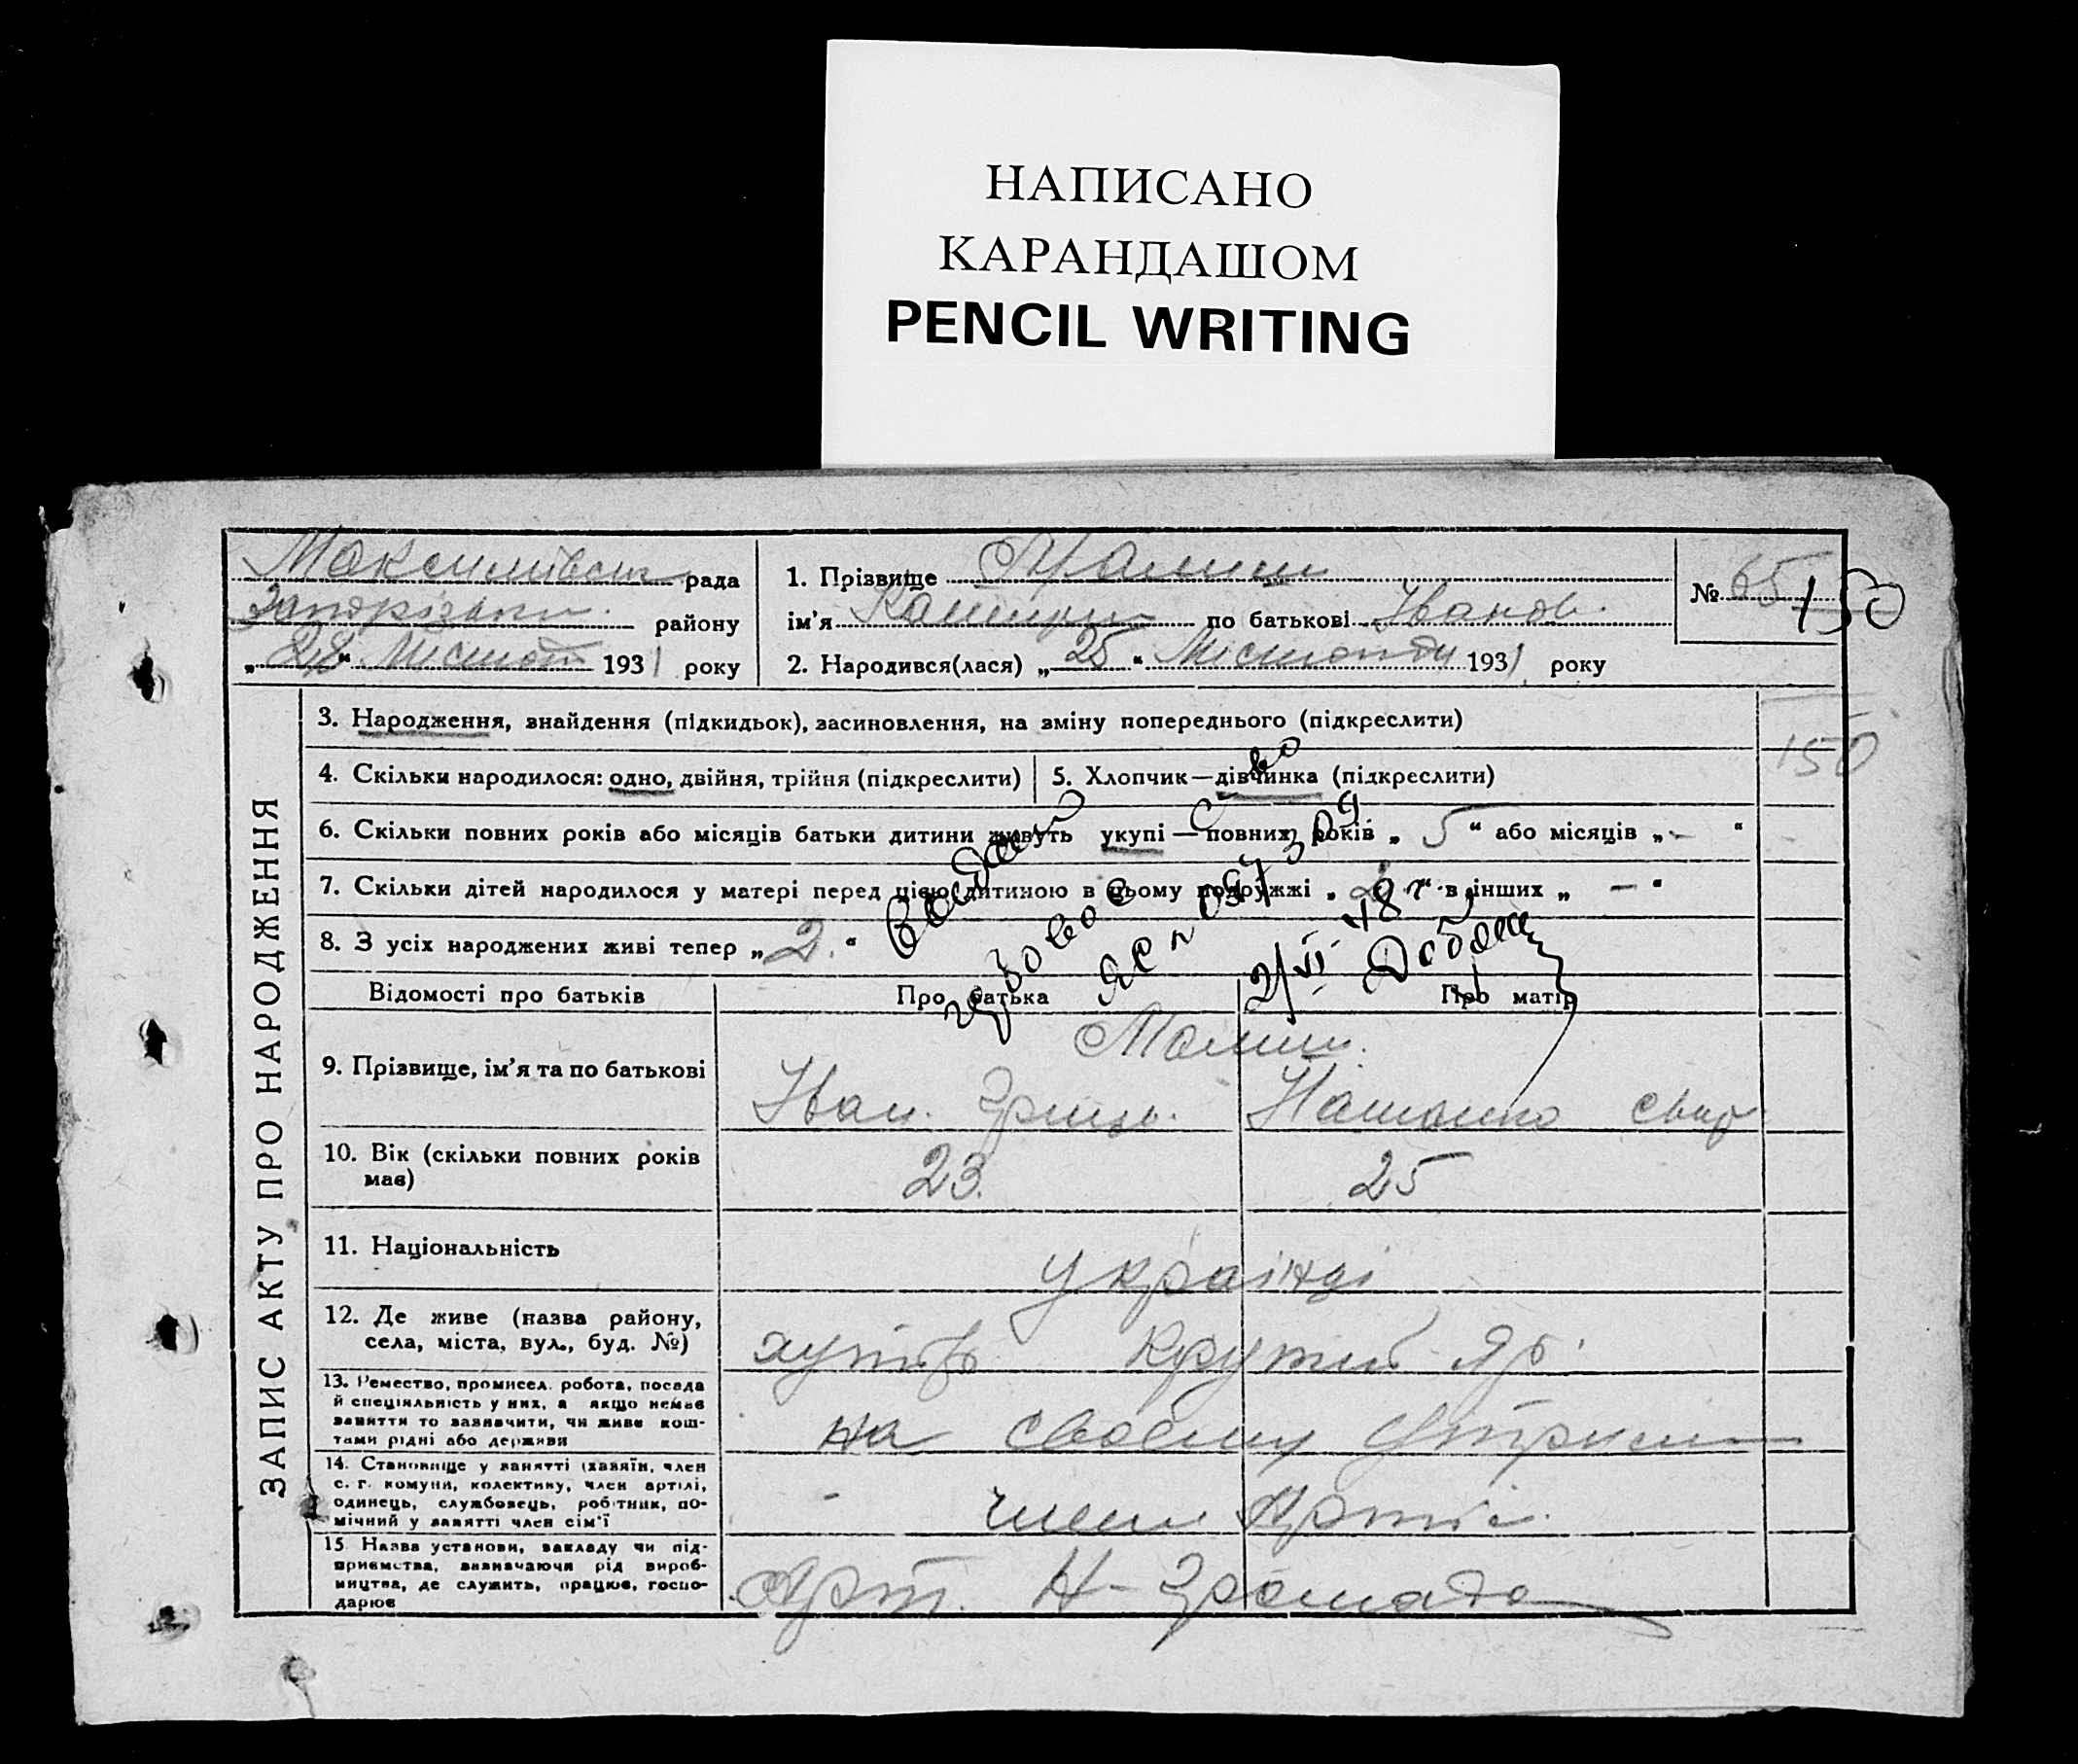 НАПИСАНО
КАРАНДАШОМ
PENCIL WRITING
рада
району
193 1 року
1. Прізвище
ім'я по батькові Іванов.
2. Народився(лася) „ 25 “ 1931 року
№ 65 150
150
ЗАПИС АКТУ ПРО НАРОДЖЕННЯ
3. Народження, знайдення (підкидьок), засиновлення, на зміну попереднього (підкреслити)
4. Скільки народилося: одно, двійня, трійня (підкреслити)
5. Хлопчик—дівчинка (підкреслити)
6. Скільки повних років або місяців батьки дитини живуть укупі — повних років „ 5 “ або місяців „ - “
7. Скільки дітей народилося у матері перед цією дитиною в цьому подружжі „ “ в інших „ — “
8. З усіх народжених живі тепер „ 2. “
Відомості про батьків
Про батька
Про матір
9. Прізвище, ім'я та по батькові
Іван.
10. Вік (скільки повних років
має)
23.
25
11. Національність
українці
12. Де живе (назва району,
села, міста, вул., буд. №)
хутір Крутий Яр
13. Ремество, промисел, робота, посада
й спеціяльність у них, а якщо немає
заняття то зазначити, чи живе кош-
тами рідні або держави
на своєму
14. Становище у занятті (хазяїн, член
с. г. комуни, колективу, член артілі,
одинець, службовець, робітник, по-
мічний у занятті член сім'ї
член Артілі
15. Назва установи, закладу чи під-
приємства, визначаючи рід вироб-
ництва, де служить, працює, госпо-
дарює
Арт. Н-Громада